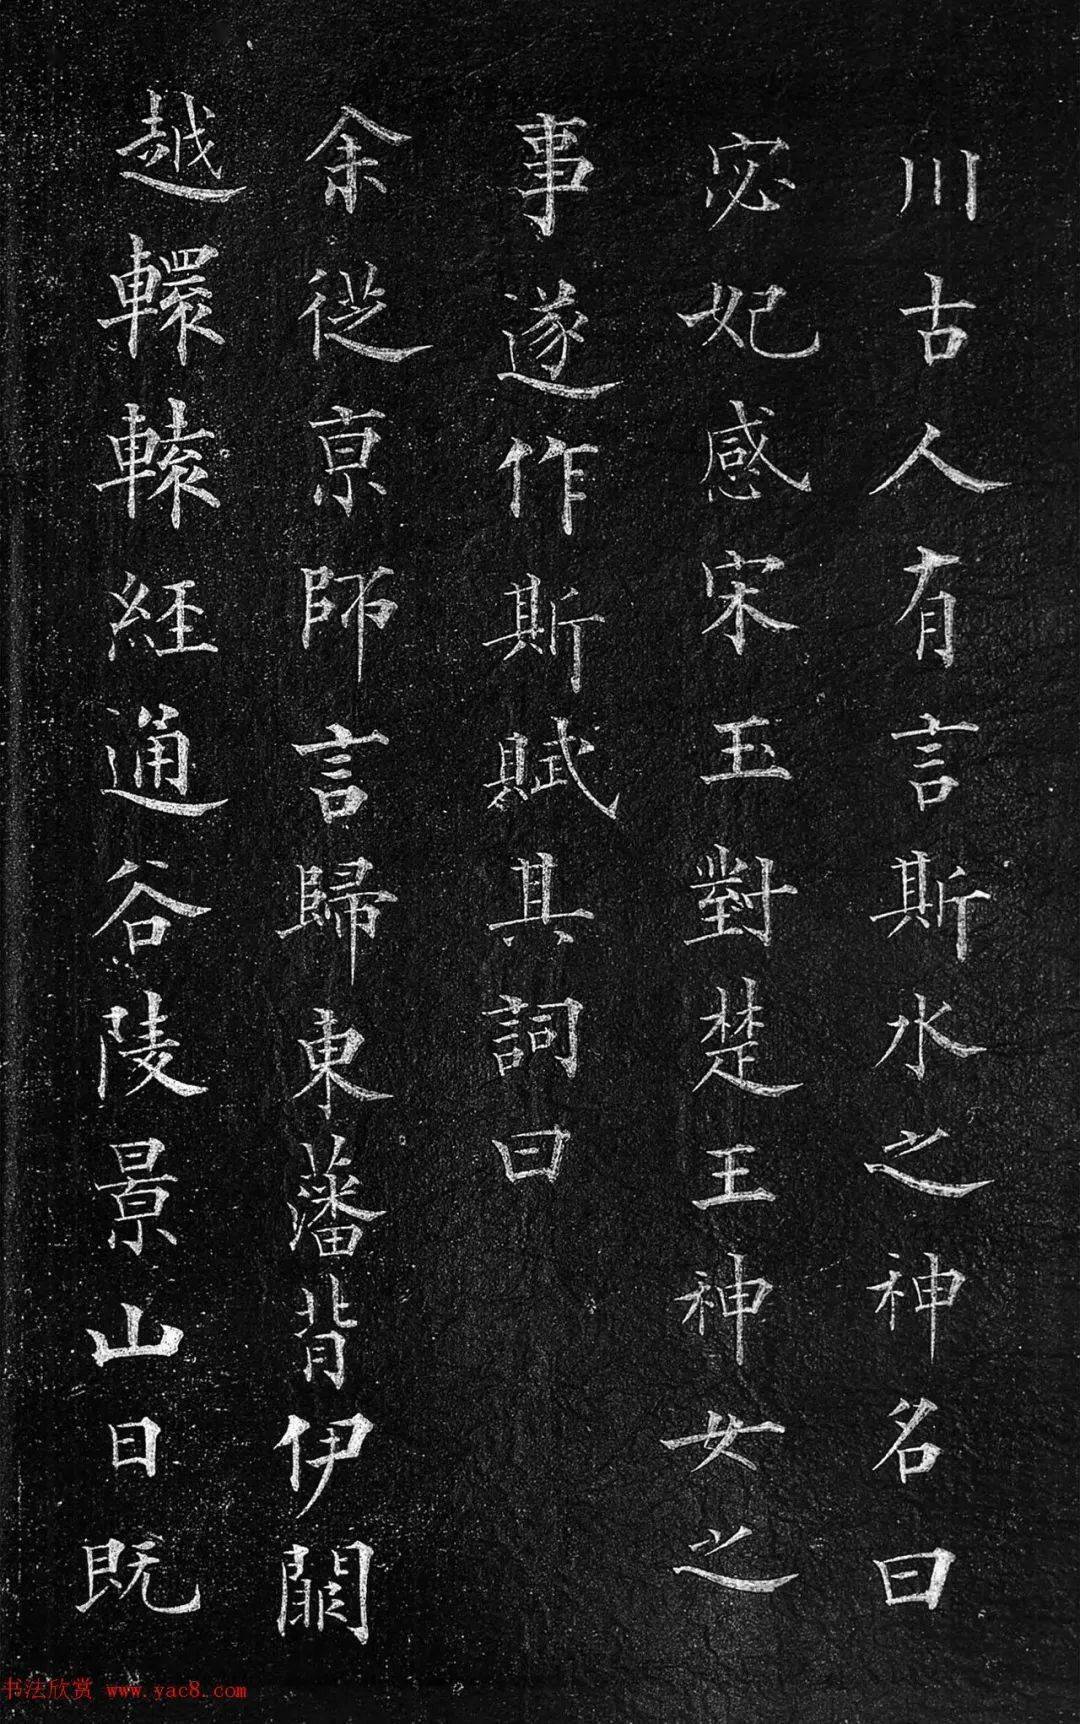 川古人有言斯水之神名曰
宓妃感宋玉對楚王神女之
事遂作斯賦其詞曰
余従京師言歸東藩背伊闕
越轘轅經通谷陵景山日既
书法欣赏 www.yac8.com